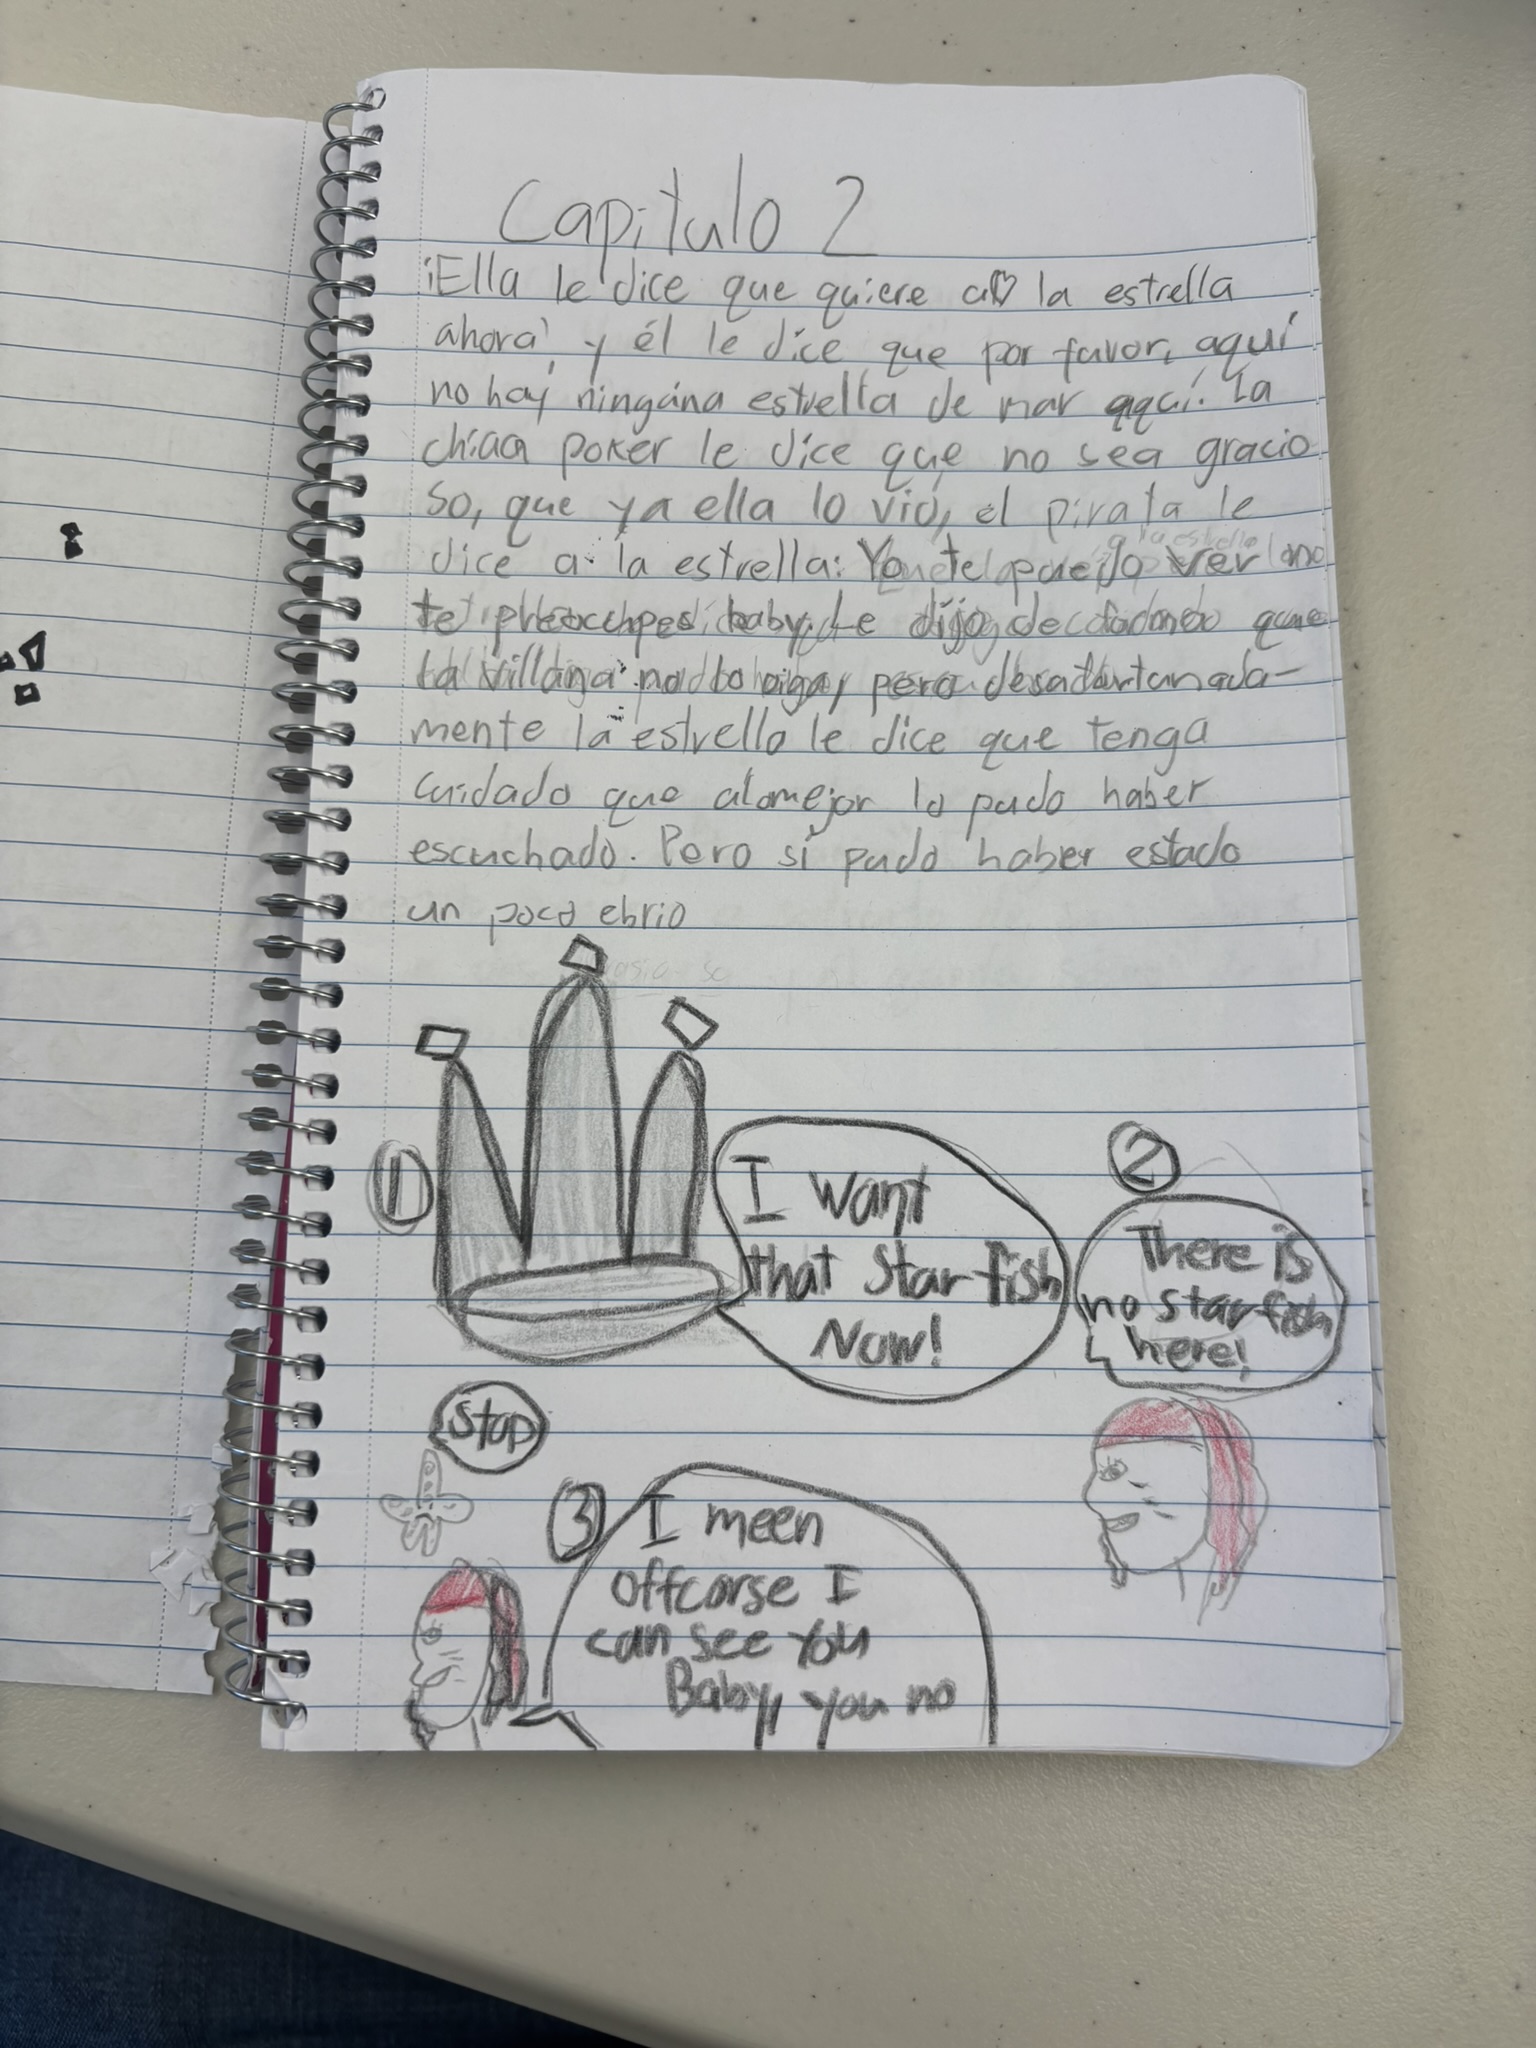 Capitulo 2
¡Ella le dice que quiere a la estrella
ahora! y él le dice que por favor, aquí
no hay ningúna estrella de mar aquí. La
chica poker le dice que no sea gracio
so, que ya ella lo vió, el pirata le
dice a la estrella: Yo te puedo ver no
te preocupes baby. Le dijo de modo que
la villana no lo oiga, pero desafortunada-
mente la estrella le dice que tenga
cuidado que alomejor lo pudo haber
escuchado. Pero sí pudo haber estado
un poco ebrio
1
I want
that Star fish
Now!
2
There is
no star fish
here!
Stop
3
I meen
offcorse I
can see You
Baby, you no